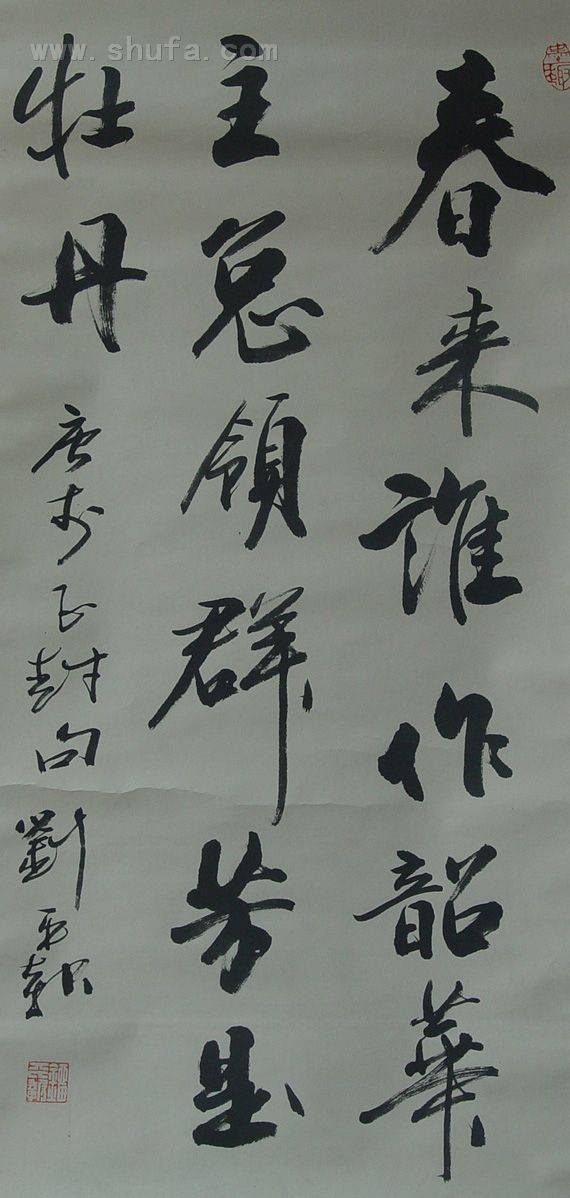 www.shufa.com
春来誰作韶華
主总領群芳是
牡丹
唐李正封句 劉